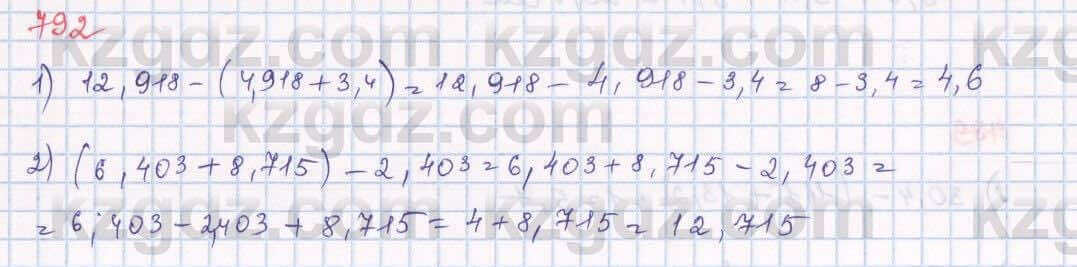 792
kzgdz.com kzgdz.com kzgdz.com
1) 12,918 - (4,918 + 3,4) = 12,918 - 4,918 - 3,4 = 8 - 3,4 = 4,6
kzgdz.com kzgdz.com
2) (6,403 + 8,715) - 2,403 = 6,403 + 8,715 - 2,403 =
= 6,403 - 2,403 + 8,715 = 4 + 8,715 = 12,715
kzgdz.com kzgdz.com kzgdz.com